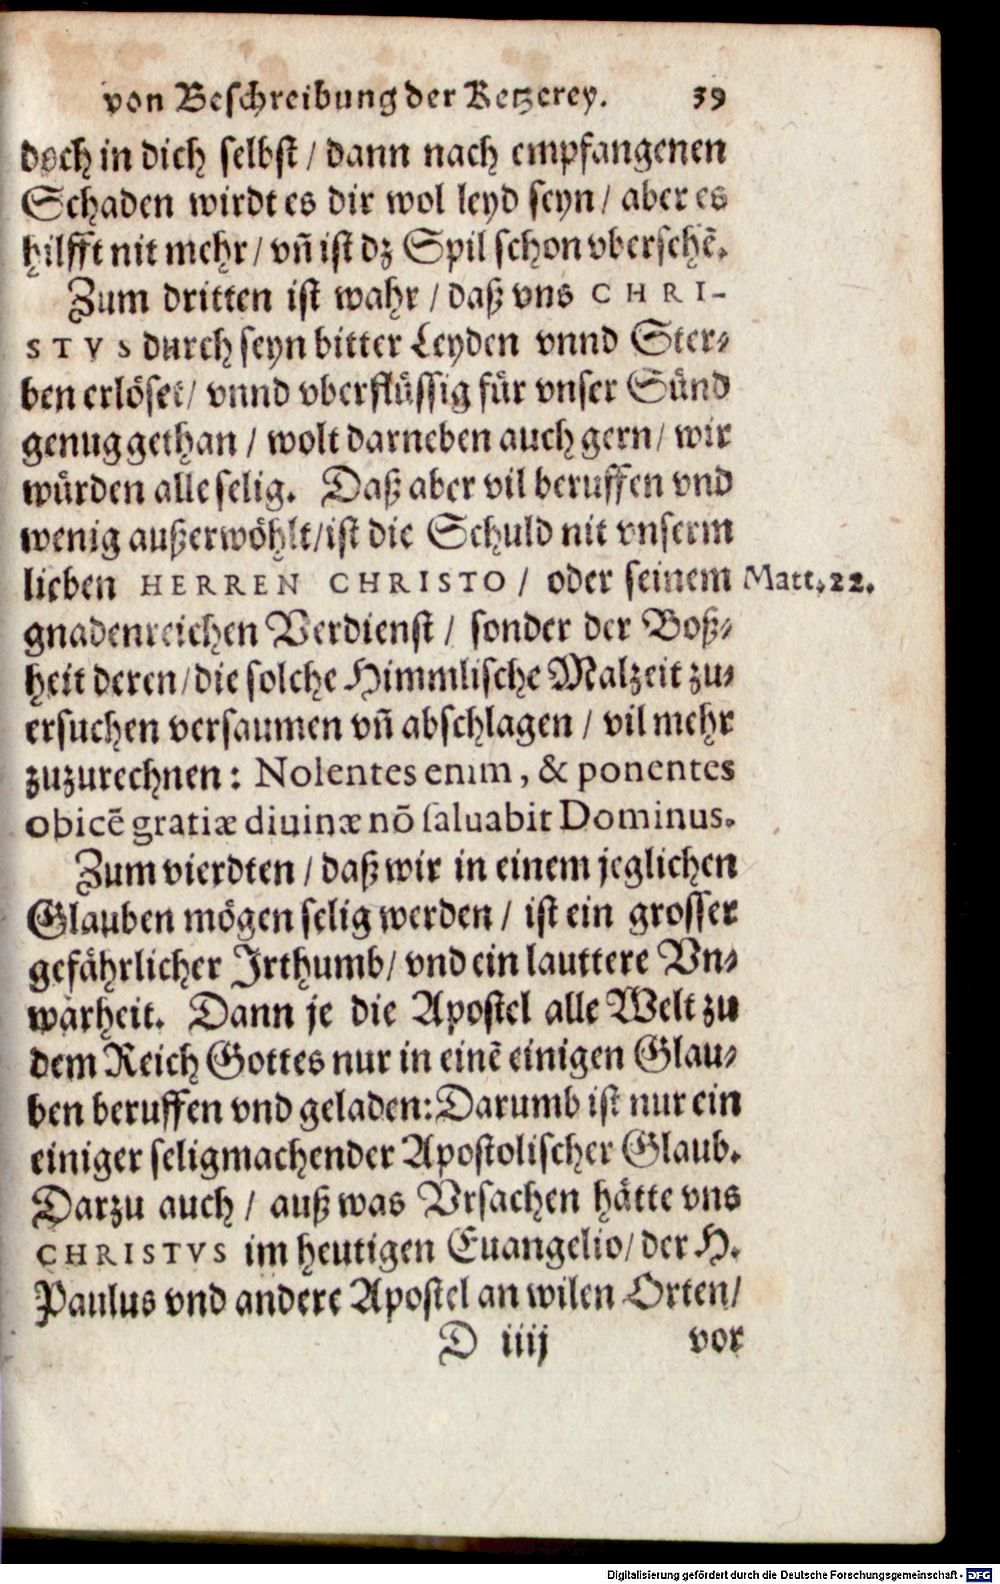 von Beschreibung der Ketzerey. 39
doch in dich selbst / dann nach empfangenen
Schaden wirdt es dir wol leyd seyn / aber es
hilfft nit mehr / vñ ist dz Spil schon vbersehẽ.
Zum dritten ist wahr / daß vns CHRI-
STVS durch seyn bitter Leyden vnnd Ster-
ben erlöset / vnnd vberflüssig für vnser Sünd
genug gethan / wolt darneben auch gern / wir
würden alle selig. Daß aber vil beruffen vnd
wenig außerwöhlt / ist die Schuld nit vnserm
lieben HERREN CHRISTO / oder seinem Matt. 22.
gnadenreichen Verdienst / sonder der Boß-
heit deren / die solche Himmlische Malzeit zu-
ersuchen versaumen vñ abschlagen / vil mehr
zuzurechnen: Nolentes enim, & ponentes
obicẽ gratiæ diuinæ nõ saluabit Dominus.
Zum vierdten / daß wir in einem jeglichen
Glauben mögen selig werden / ist ein grosser
gefährlicher Irthumb / vnd ein lauttere Vn-
warheit. Dann je die Apostel alle Welt zu
dem Reich Gottes nur in einẽ einigen Glau-
ben beruffen vnd geladen: Darumb ist nur ein
einiger seligmachender Apostolischer Glaub.
Darzu auch / auß was Vrsachen hätte vns
CHRISTVS im heutigen Euangelio / der H.
Paulus vnd andere Apostel an wilen Orten /
D iiij vor
Digitalisierung gefördert durch die Deutsche Forschungsgemeinschaft - DFG